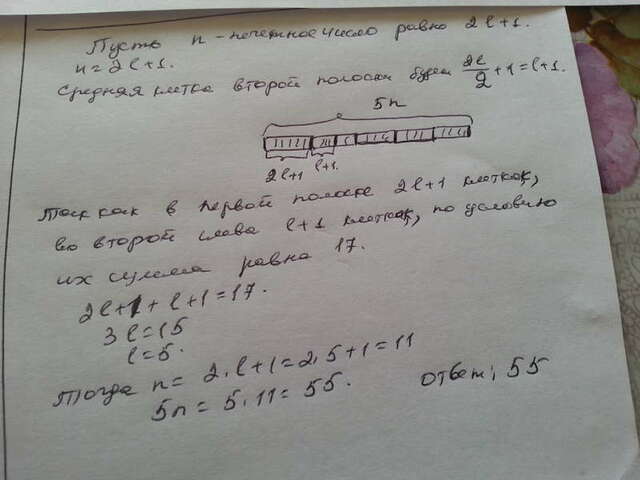 Пусть n - нечетное число равно 2l+1.
n=2l+1.
Средняя клетка второй полоски будет 2l/2+1=l+1.
5n
2l+1 l+1.
Так как в первой полоске 2l+1 клеток,
во второй слева l+1 клеток, по условию
их сумма равна 17.
2l+1+l+1=17.
3l=15
l=5.
Тогда n= 2·l+1=2·5+1=11
5n=5·11=55. Ответ: 55